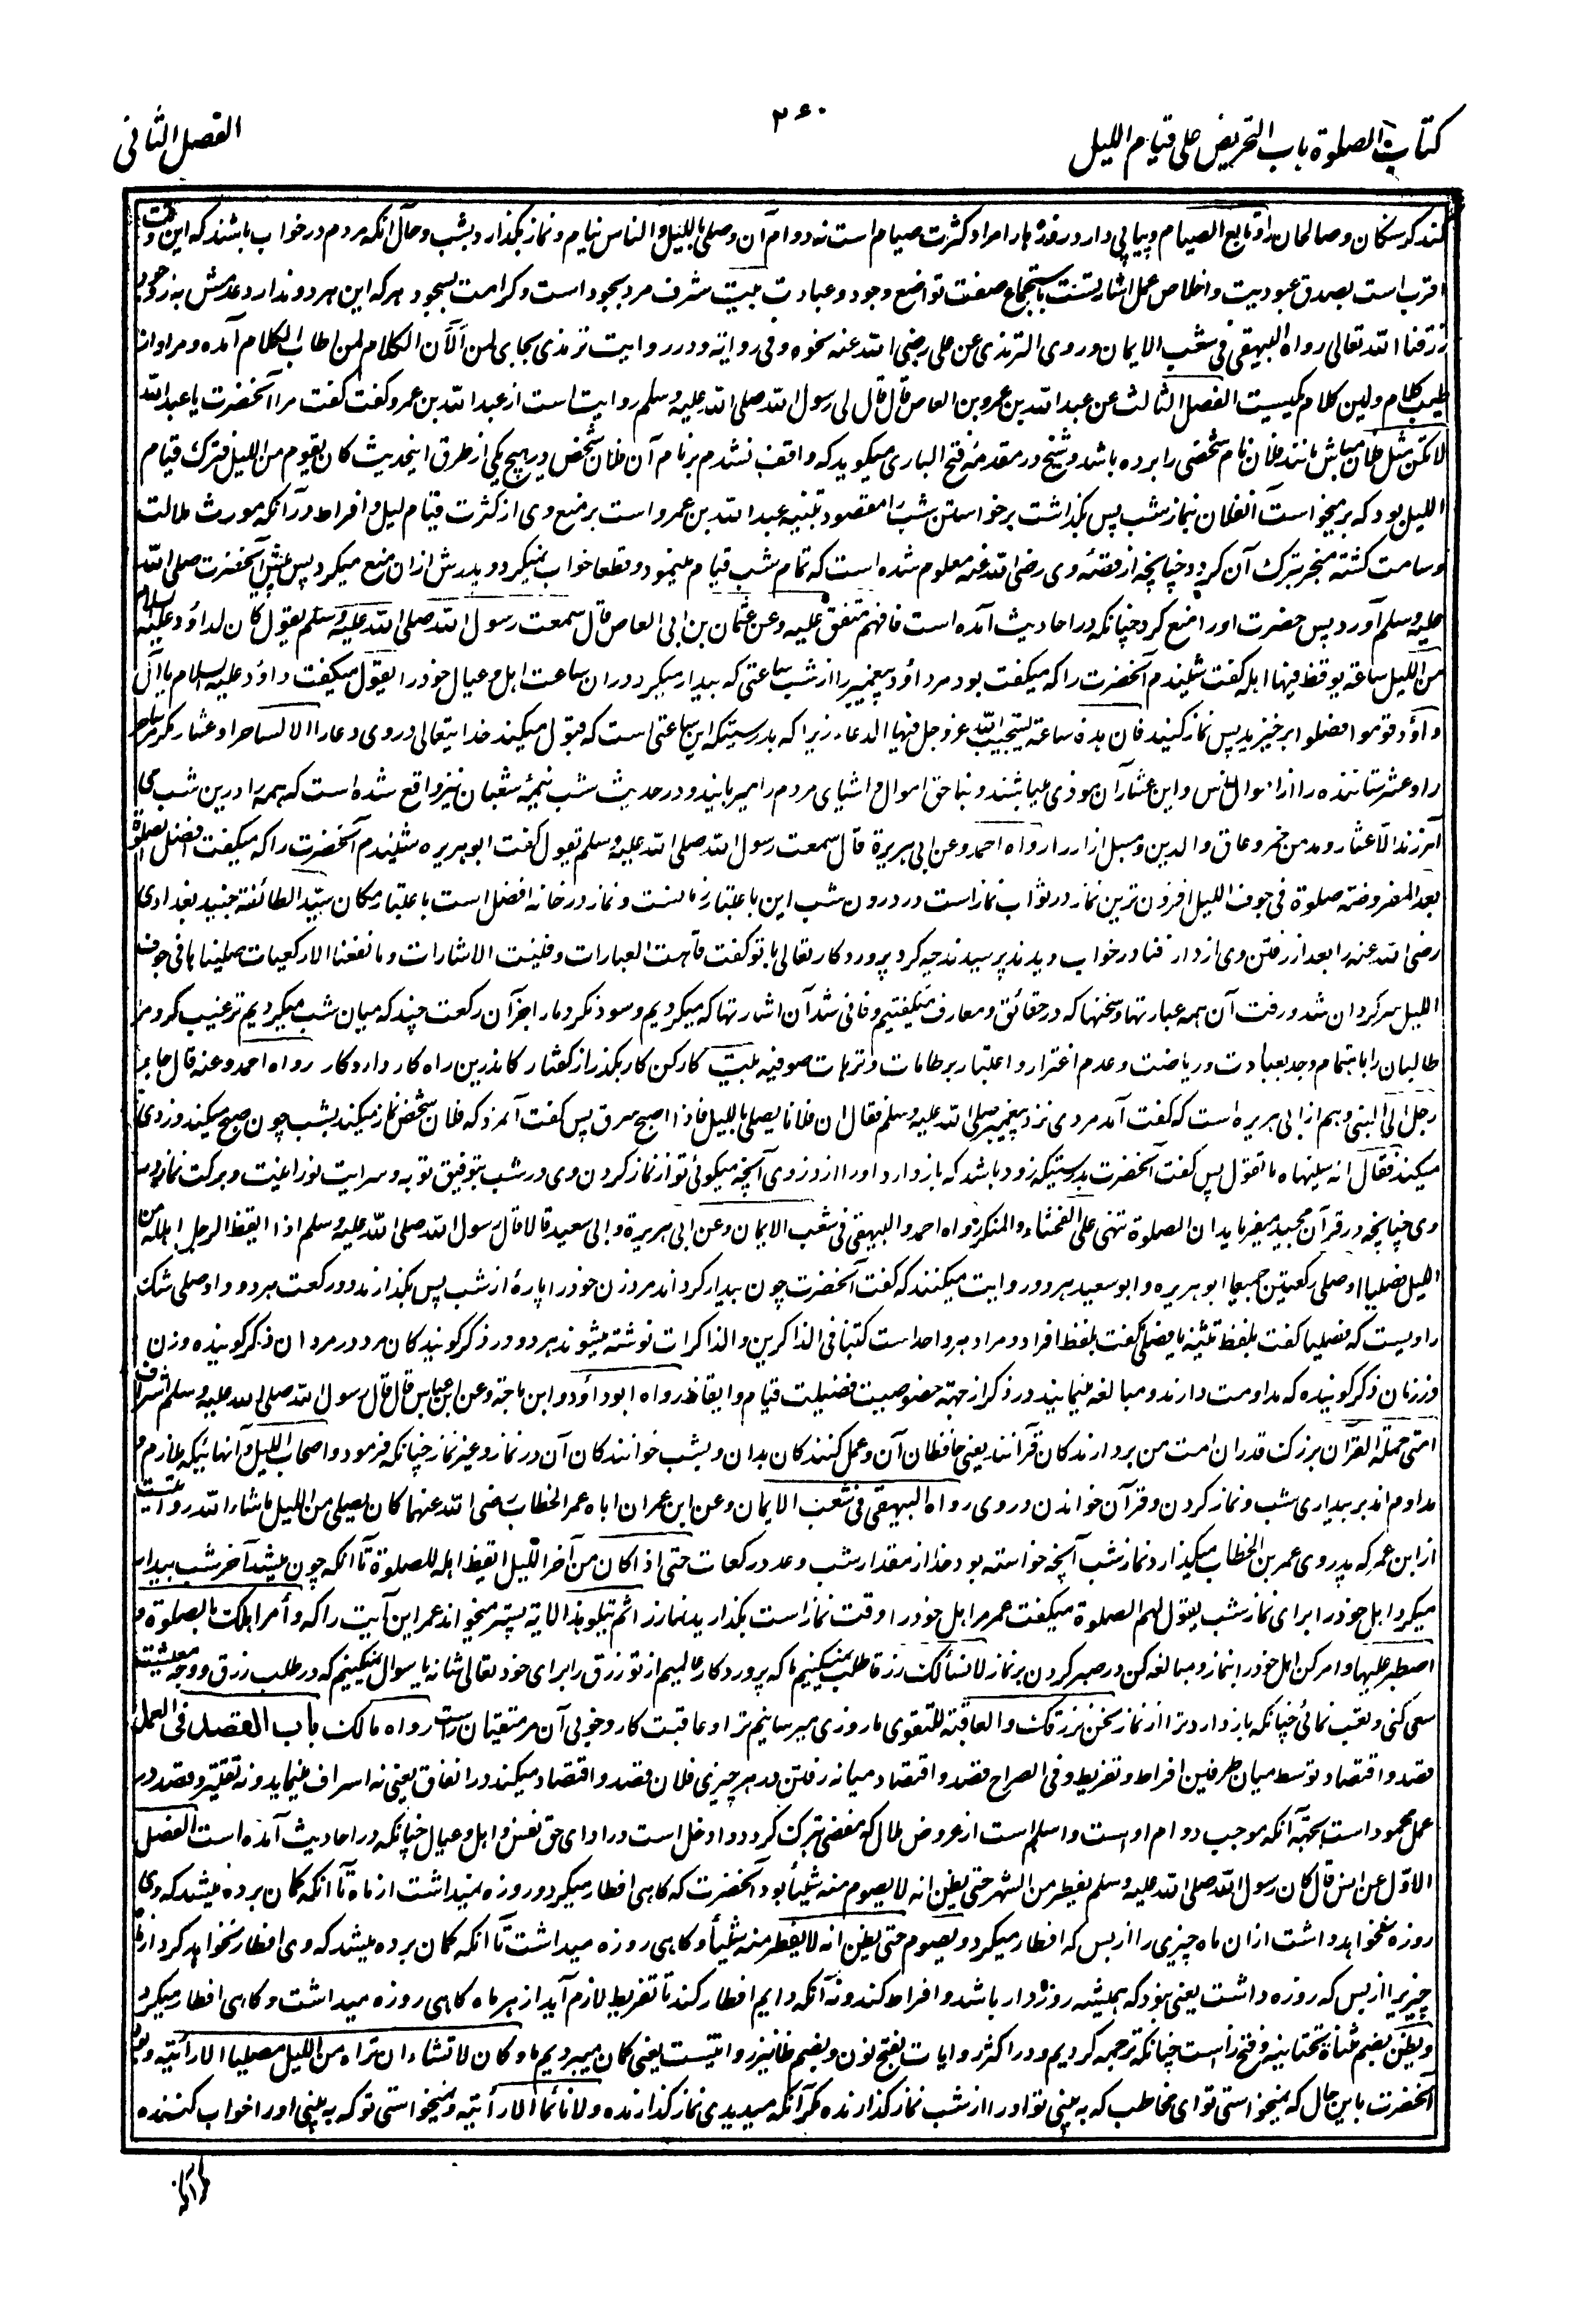 کتاب الصلوة باب التحریض علی قیام اللیل
۵۶۰
الفصل الثانی
کند گرسنگان و صالحان را و تابع الصیام و پیاپی دارد روزه ها را مراد کثرت صیام است نه دوام آن وصلی باللیل والناس نیام و نماز بگذارد بشب و حال آنکه مردم در خواب باشند که این وقت
اقرب است بصدق عبودیت و اخلاص عمل اشارتست باستجماع صفت تواضع وجود و عبادت بیت شرف مرد بجود است و کرامت بسجود هرکه این هردو ندارد عدمش به ز وجود
رزقنا الله تعالی رواه البیهقی فی شعب الایمان و روی الترمذی عن علی رضی الله عنه نحوه و فی روایته و در روایت ترمذی بجای لمن ألان الکلام لمن اطاب الکلام آمده و مراد از
طیب کلام و لین کلام یکیست الفصل الثالث عن عبدالله بن عمرو بن العاص قال قال لی رسول الله صلی الله علیه وسلم روایت است از عبدالله بن عمرو گفت گفت مرا آنحضرت یا عبدالله
لا تکن مثل فلان مباش مانند فلان نام شخصی را برده باشد و شیخ در مقدمه فتح الباری میگوید که واقف نشدم بر نام آن فلان شخص در هیچ یکی از طرق اینحدیث کان یقوم من اللیل فترک قیام
اللیل بود که برمیخواست آنفلان بنماز شب پس بگذاشت برخواستن شب را مقصود تنبیه عبدالله بن عمرو است بر منع وی از کثرت قیام لیل و افراط در آن که مورث ملالت
و سامت گشته منجر بترک آن گردد چنانچه از قصه وی رضی الله عنه معلوم شده است که تمام شب قیام مینمود و قطعا خواب نمیکرد و پدرش ازان منع میکرد پس پیش آنحضرت صلی الله
علیه وسلم آورد پس حضرت او را منع کرد چنانکه در احادیث آمده است فافهم متفق علیه و عن عثمان بن ابی العاص قال سمعت رسول الله صلی الله علیه وسلم یقول کان لداؤد علیه السلام
من اللیل ساعة یوقظ فیها اهله گفت شنیدم آنحضرت را که میگفت بود مر داؤد پیغمبر را از شب ساعتی که بیدار میکرد دران ساعت اهل و عیال خود را یقول میگفت داؤد علیه السلام یا آل
داؤد قوموا فصلوا برخیزید پس نماز کنید فان هذه ساعة یستجیب الله عز و جل فیها الدعاء زیرا که بدرستیکه این ساعتی است که قبول میکند خدایتعالی در وی دعا را الا لساحر او عشار مگر ساحر
را و عشر ستاننده را از اموال ناس و این عشاران موذی میباشند و بناحق اموال و اشیای مردم را میربایند و در حدیث شب نیمه شعبان نیز واقع شده است که همه را درین شب می
آمرزند الا عشار و مدمن خمر و عاق والدین و مسبل ازار را رواه احمد و عن ابی هریرة قال سمعت رسول الله صلی الله علیه وسلم یقول گفت ابوهریره شنیدم آنحضرت را که میگفت افضل الصلوة
بعد المفروضة صلوة فی جوف اللیل افزون ترین نماز در ثواب نماز است در درون شب این باعتبار زمانست و نماز در خانه افضل است باعتبار مکان سید الطائفة جنید بغدادی
رضی الله عنه را بعد از رفتن وی از دار فنا در خواب دیدند پرسیدند چه کرد پروردگار تعالی با تو گفت تاهت العبارات و فنیت الاشارات و ما نفعنا الا رکعیات صلیناها فی جوف
اللیل سرگردان شد و رفت آن همه عبارتها و سخنها که در حقائق و معارف میگفتیم و فانی شد آن اشارتها که میکردیم و سود نکرد ما را جز آن رکعت چند که میان شب میکردیم ترغیب کرد مر
طالبان را باهتمام و جد بعبادت و ریاضت و عدم اغترار و اعتبار بر طامات و ترهات صوفیه بیت کارکن کار بگذر از گفتار کاندرین راه کار دارد کار رواه احمد و عنه قال جاء
رجل الی النبی و هم از ابی هریره است که گفت آمد مردی نزد پیغمبر صلی الله علیه وسلم فقال ان فلانا یصلی باللیل فاذا اصبح سرق پس گفت آنمرد که فلان شخص نماز میکند بشب چون صبح میکند دزدی
میکند فقال انه سینهاه ما تقول پس گفت آنحضرت بدرستیکه زود باشد که باز دارد او را از دزدی آنچه میگوئی تو از نماز کردن وی در شب بتوفیق توبه و سرایت نورانیت و برکت نماز در
وی چنانچه در قرآن مجید میفرماید ان الصلوة تنهی عن الفحشاء والمنکر رواه احمد والبیهقی فی شعب الایمان و عن ابی هریرة و ابی سعید قالا قال رسول الله صلی الله علیه وسلم اذا ایقظ الرجل اهله من
اللیل فصلیا او صلی رکعتین جمیعا ابوهریره و ابوسعید هردو روایت میکنند که گفت آنحضرت چون بیدار گرداند مرد زن خود را پارهٔ از شب پس بگذارند دو رکعت هردو و او صلی شک
راویست که فصلیا گفت بلفظ تثنیه یا فصلی گفت بلفظ افراد و مراد هر واحد است کتبا فی الذاکرین والذاکرات نوشته میشوند هردو در ذکر گویندگان مرد در مردان ذکر گوینده و زن
در زنان ذکر گوینده که مداومت دارند و مبالغه مینمایند در ذکر از جهة خصوصیت فضیلت قیام و ایقاظ رواه ابوداؤد وابن ماجة و عن ابن عباس قال قال رسول الله صلی الله علیه وسلم اشراف
امتی حملة القرآن بزرگ قدران امت من بردارندگان قرآنند یعنی حافظان آن و عمل کنندگان بدان و بشب خوانندگان آن در نماز و غیر نماز چنانکه فرمود و اصحاب اللیل و آنهائیکه ملازم و
مداوم اند بر بیداری شب و نماز کردن و قرآن خواندن در وی رواه البیهقی فی شعب الایمان و عن ابن عمر ان اباه عمر الخطاب رضی الله عنهما کان یصلی من اللیل ما شاء الله روایت است
از ابن عمر که پدر وی عمر بن الخطاب میگذارد نماز شب آنچه خواسته بود خدا از مقدار شب و عدد رکعات حتی اذا کان من آخر اللیل ایقظ اهله للصلوة تا آنکه چون میشد آخر شب بیدار
میکرد اهل خود را برای نماز شب یقول لهم الصلوة میگفت عمر مر اهل خود را وقت نماز است بگذارید نماز را ثم یتلو هذه الایة پستر میخواند عمر این آیت را که وأمر اهلک بالصلوة و
اصطبر علیها و امر کن اهل خود را بنماز و مبالغه کن در صبر کردن بر نماز لا نسألک رزقا طلب نمیکنیم ما که پروردگار عالمیم از تو رزق را برای خود تعالی شانه یا سوال نمیکنیم که در طلب رزق و وجه معیشت
سعی کنی و تعب نمائی چنانکه باز دارد ترا از نماز نحن نرزقک والعاقبة للتقوی ما روزی میرسانیم ترا و عاقبت کار و خوبی آن مر متقیان راست رواه مالک باب القصد فی العمل
قصد و اقتصاد توسط میان طرفین افراط و تفریط و فی الصراح قصد و اقتصاد میانه رفتن در هر چیزی فلان قصد و اقتصاد میکند در انفاق یعنی نه اسراف مینماید و نه تقتیر و قصد در
عمل محمود است بجهة آنکه موجب دوام اوست و اسلم است از عروض ملال که مفضی بترک گردد و ادخل است در ادای حق نفس و اهل و عیال چنانکه در احادیث آمده است الفصل
الاوّل عن انس قال کان رسول الله صلی الله علیه وسلم یفطر من الشهر حتی یظن انه لا یصوم منه شیئا بود آنحضرت که گاهی افطار میکرد و روزه نمیداشت از ماه تا آنکه گمان برده میشد که وی
روزه نخواهد داشت ازان ماه چیزی را از بس که افطار میکرد و یصوم حتی یظن انه لا یفطر منه شیئا و گاهی روزه میداشت تا آنکه گمان برده میشد که وی افطار نخواهد کرد ازان
چیزیرا از بس که روزه داشت یعنی نبود که همیشه روزه دار باشد و افراط کند و نه آنکه دایم افطار کند تا تفریط لازم آید از هر ماه گاهی روزه میداشت و گاهی افطار میکرد
و یظن بضم مثناة تحتانیه و فتح ظاست چنانکه ترجمه کردیم و در اکثر روایات بفتح نون و بضم ظا نیز روایتیست یعنی گمان میبردیم ما و کان لا تشاء ان تراه من اللیل مصلیا الا رأیته و بود
آنحضرت باین حال که نمیخواستی تو ای مخاطب که به بینی تو او را از شب نماز گذارنده مگر آنکه میدیدی نماز گذارنده ولا نائما الا رأیته و نمیخواستی تو که به بینی او را خواب کننده
مگر آنکه